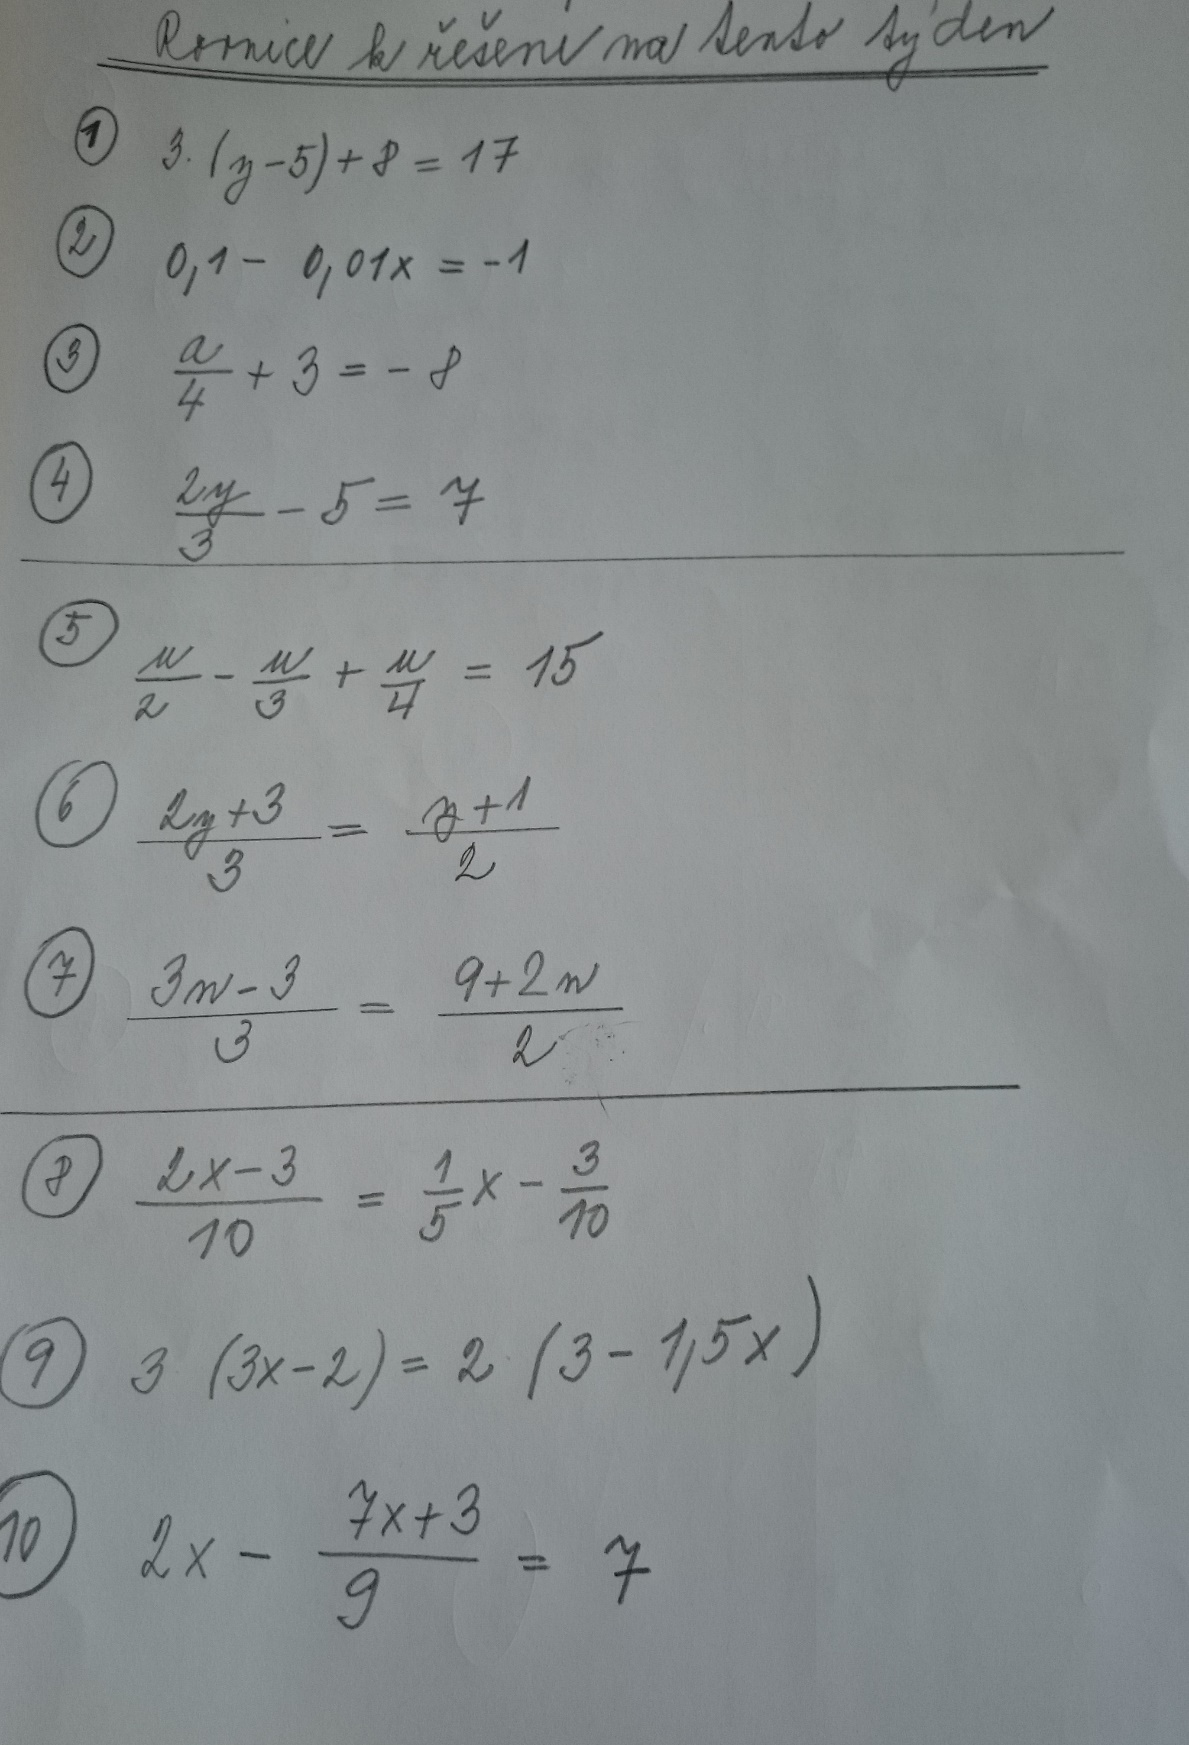 Rovnice k řešení na tento týden
1 3·(y-5)+8 = 17
2 0,1 - 0,01x = -1
3 a/4 + 3 = -8
4 2y/3 - 5 = 7
5 u/2 - u/3 + u/4 = 15
6 2y+3/3 = y+1/2
7 3n-3/3 = 9+2n/2
8 2x-3/10 = 1/5 x - 3/10
9 3 (3x-2) = 2·(3-1,5x)
10 2x - 7x+3/9 = 7